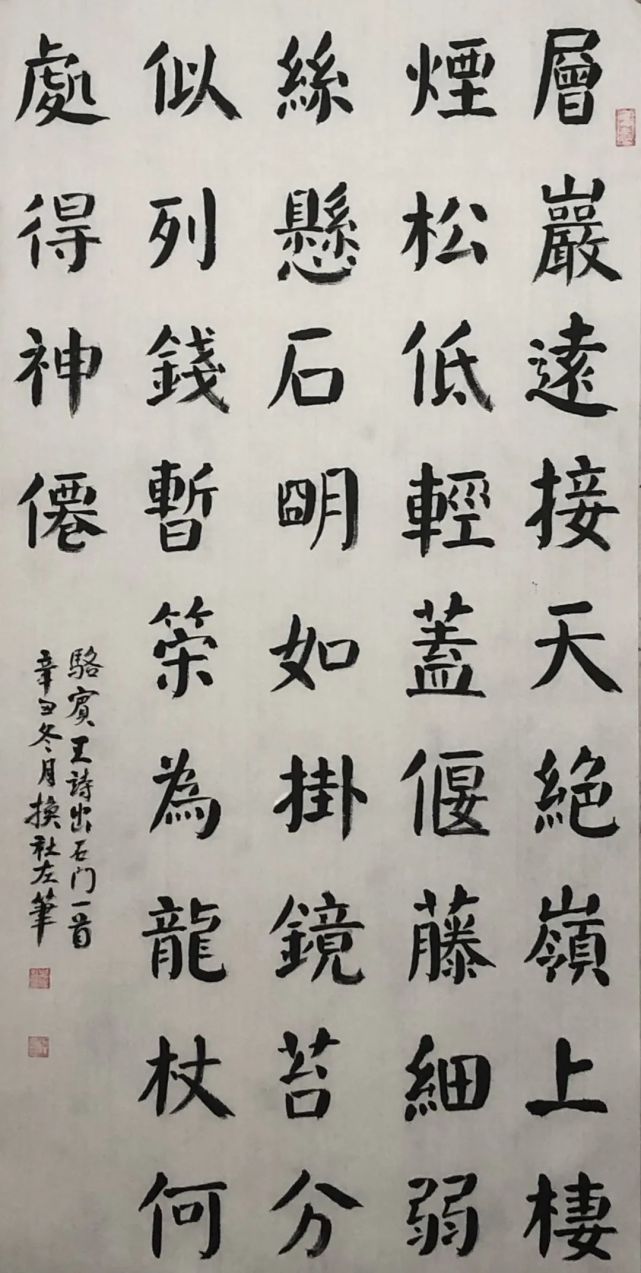 層巖遠接天絕嶺上棲
煙松低輕蓋偃藤細弱
絲懸石明如掛鏡苔分
似列錢暫策為龍杖何
處得神僊
駱賓王詩出石门一首
辛丑冬月換社左筆